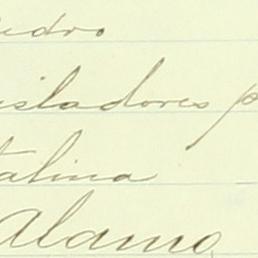 edro
isladores p
talina
Alamo